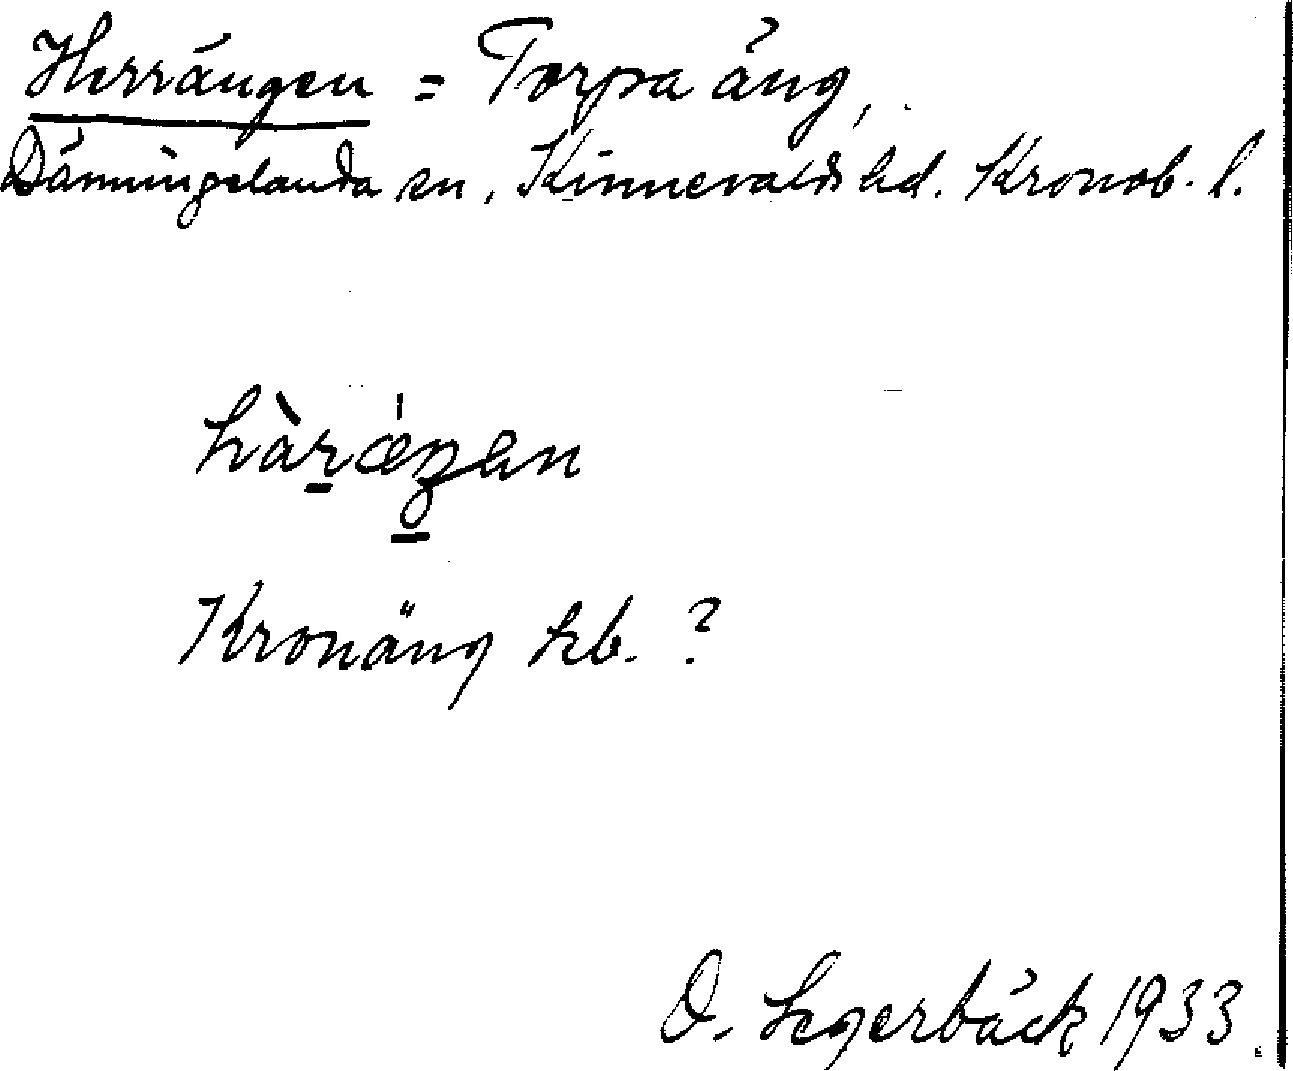 Herrängen = Torpa äng,
Dänningelanda sn, Kinnevalds hd. Kronob. l.
hàræŋen
Kronäng kb. ?
O. Segerbäck 1933.